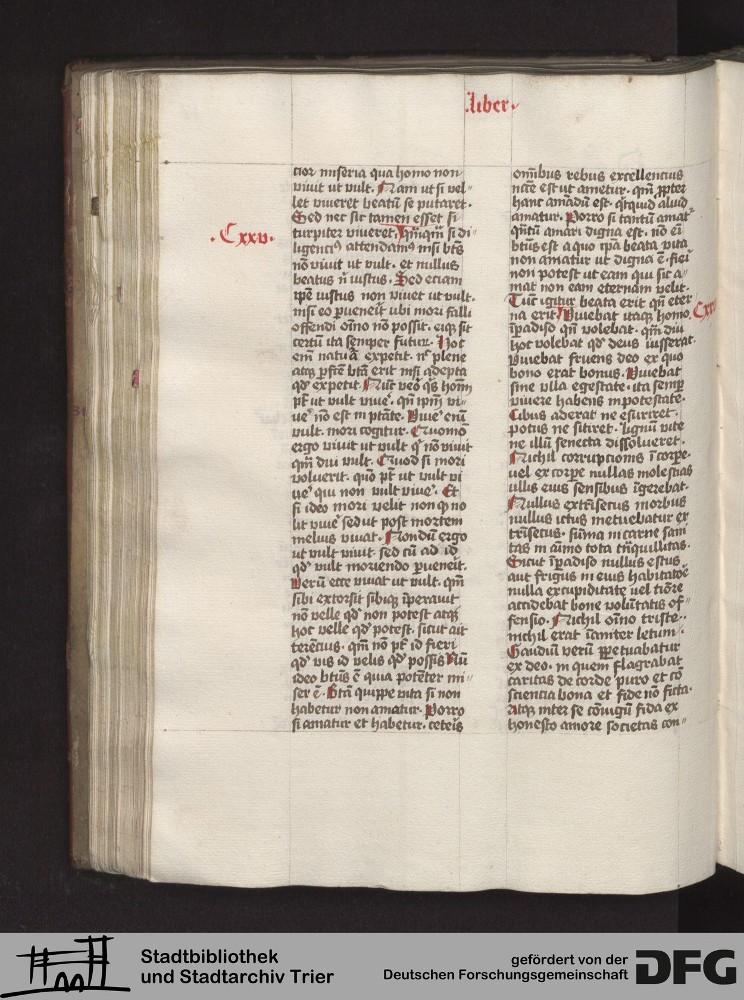 Liber·
tior miseria qua homo non
viuit ut vult. Nam ut si vel-
let viueret beatū se putaret·
Sed nec sic tamen esset si
turpiter viueret, qm̄qm̄ si di-
·Cxxv·
ligenciꝰ attendamꝰ nisi bt̄s
nō viuit ut vult· et nullus
beatus n̄ iustus· Sed eciam
ip̄e iustus non viuet ut vult·
nisi eo ꝑuen̄it ubi mori falli
offendi oīno nō possit· eiqȝ sit
certū ita semper futur̄· Hoc
em̄ natuᵃ̄ expetit· nᶜ plene
atqȝ ꝑfc̄e bt̄ā erit nisi adepta
qd̓ expetit· Nūc veō qͥs hom̄
pt̄ ut vult viue᷑· qn̄ ip̄m̄ vi-
ue᷑ nō est in ptāte· Viue᷑ enū
vult· mori cogitur· Quomō
ergo viuit ut vult qͥ nō viuit
qm̄ diu vult· Quod si mori
voluerit· quō pt̄ ut vult vi
ue᷑ qui non vult viue᷑· Et
si ideo mori velit non qͥ no
lit viue᷑ sed ut post mortem
melius viuat· Nondū ergo
ut vult viuit· sed cū ad id
qd̓ vult moriendo ꝑuen̄it·
Verū ecce viuat ut vult· qm̄
sibi extorsit sibiqȝ īꝑauit
nō velle qd̓ non potest atqȝ
hoc velle qd̓ potest· sicut ait
terēcius· qm̄ nō pt̄ id fieri
qd̓ vis id velis qd̓ possis Nū
ideo bt̄us ē quia potēter mi-
ser ē· Bt̄ā quippe vita si non
habetur non amatur· Porro
si amatur et habetur· ceteīs
om̄ibus rebus excellencius
nc̄ce est ut ametur· qm̄ ꝓpter
hanc amādū est· qͥtquid aliud
amatur· Porro si tantū amatͬ
qn̄tū amari digna est· nō eī
bt̄us est a quo ip̄a beata vita
non amatur ut digna ē· fieī
non potest ut eam qui sic a-
mat non eam eternam velit·
Tūc igitur beata erit qn̄ eter
na erit· Viuebat itaqȝ homo·
ī ꝑadiso qn̄ volebat· qm̄ diu
hoc volebat qd̓ deus iusserat·
Viuebat fruens deo ex quo
bono erat bonus· Viuebat
sine vlla egestate· ita semꝑ
viuere habens in potestate·
Cibus aderat ne esuriret·
potus ne sitiret· lignū vite
ne illū senecta dissolueret·
Nichil corrupcionis ī corꝑe·
uel ex corꝑe nullas molestias
ullis eius sensibus īgerebat·
Nullus extrīsecus morbus
nullus ictus metuebatur ex
trīsecus· sūma in carne sani
tas in aīmo tota tn̄quillitas·
Sicut ī ꝑadiso nullus estus
aut frigus in eius habitatoē
nulla ex cupiditate uel tiōre
accidebat bone volūtatis of-
fensio· Nichil oīno triste··
nichil erat ianiter letum·
Gaudiū verū ꝑpetuabatur
ex deo· in quem flagrabat
caritas de corde puro et cō
sciencia bona et fide nō ficta·
Atqȝ inter se cōiugū fida ex
honesto amore societas con-
Stadtbibliothek
und Stadtarchiv Trier
gefördert von der
Deutschen Forschungsgemeinschaft
DFG